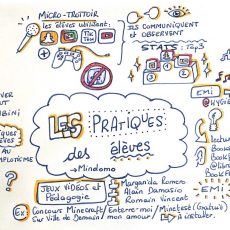 MICRO-TROTTOIR
les élèves utilisent:
TikTok
ILS COMMUNIQUENT
et OBSERVENT
STATS: Top 3
1
2
3
EMI
LES PRATIQUES
des élèves
→ Mindomo
JEUX VIDÉOS et
Pédagogie
Margarida Romero
Alain Damasio
Romain Vincent
EMI
Ex:
Concours Minecraft / Enterre-moi / Minetest (Gratuit)
Sur Ville de Demain / mon amour / → A installer.